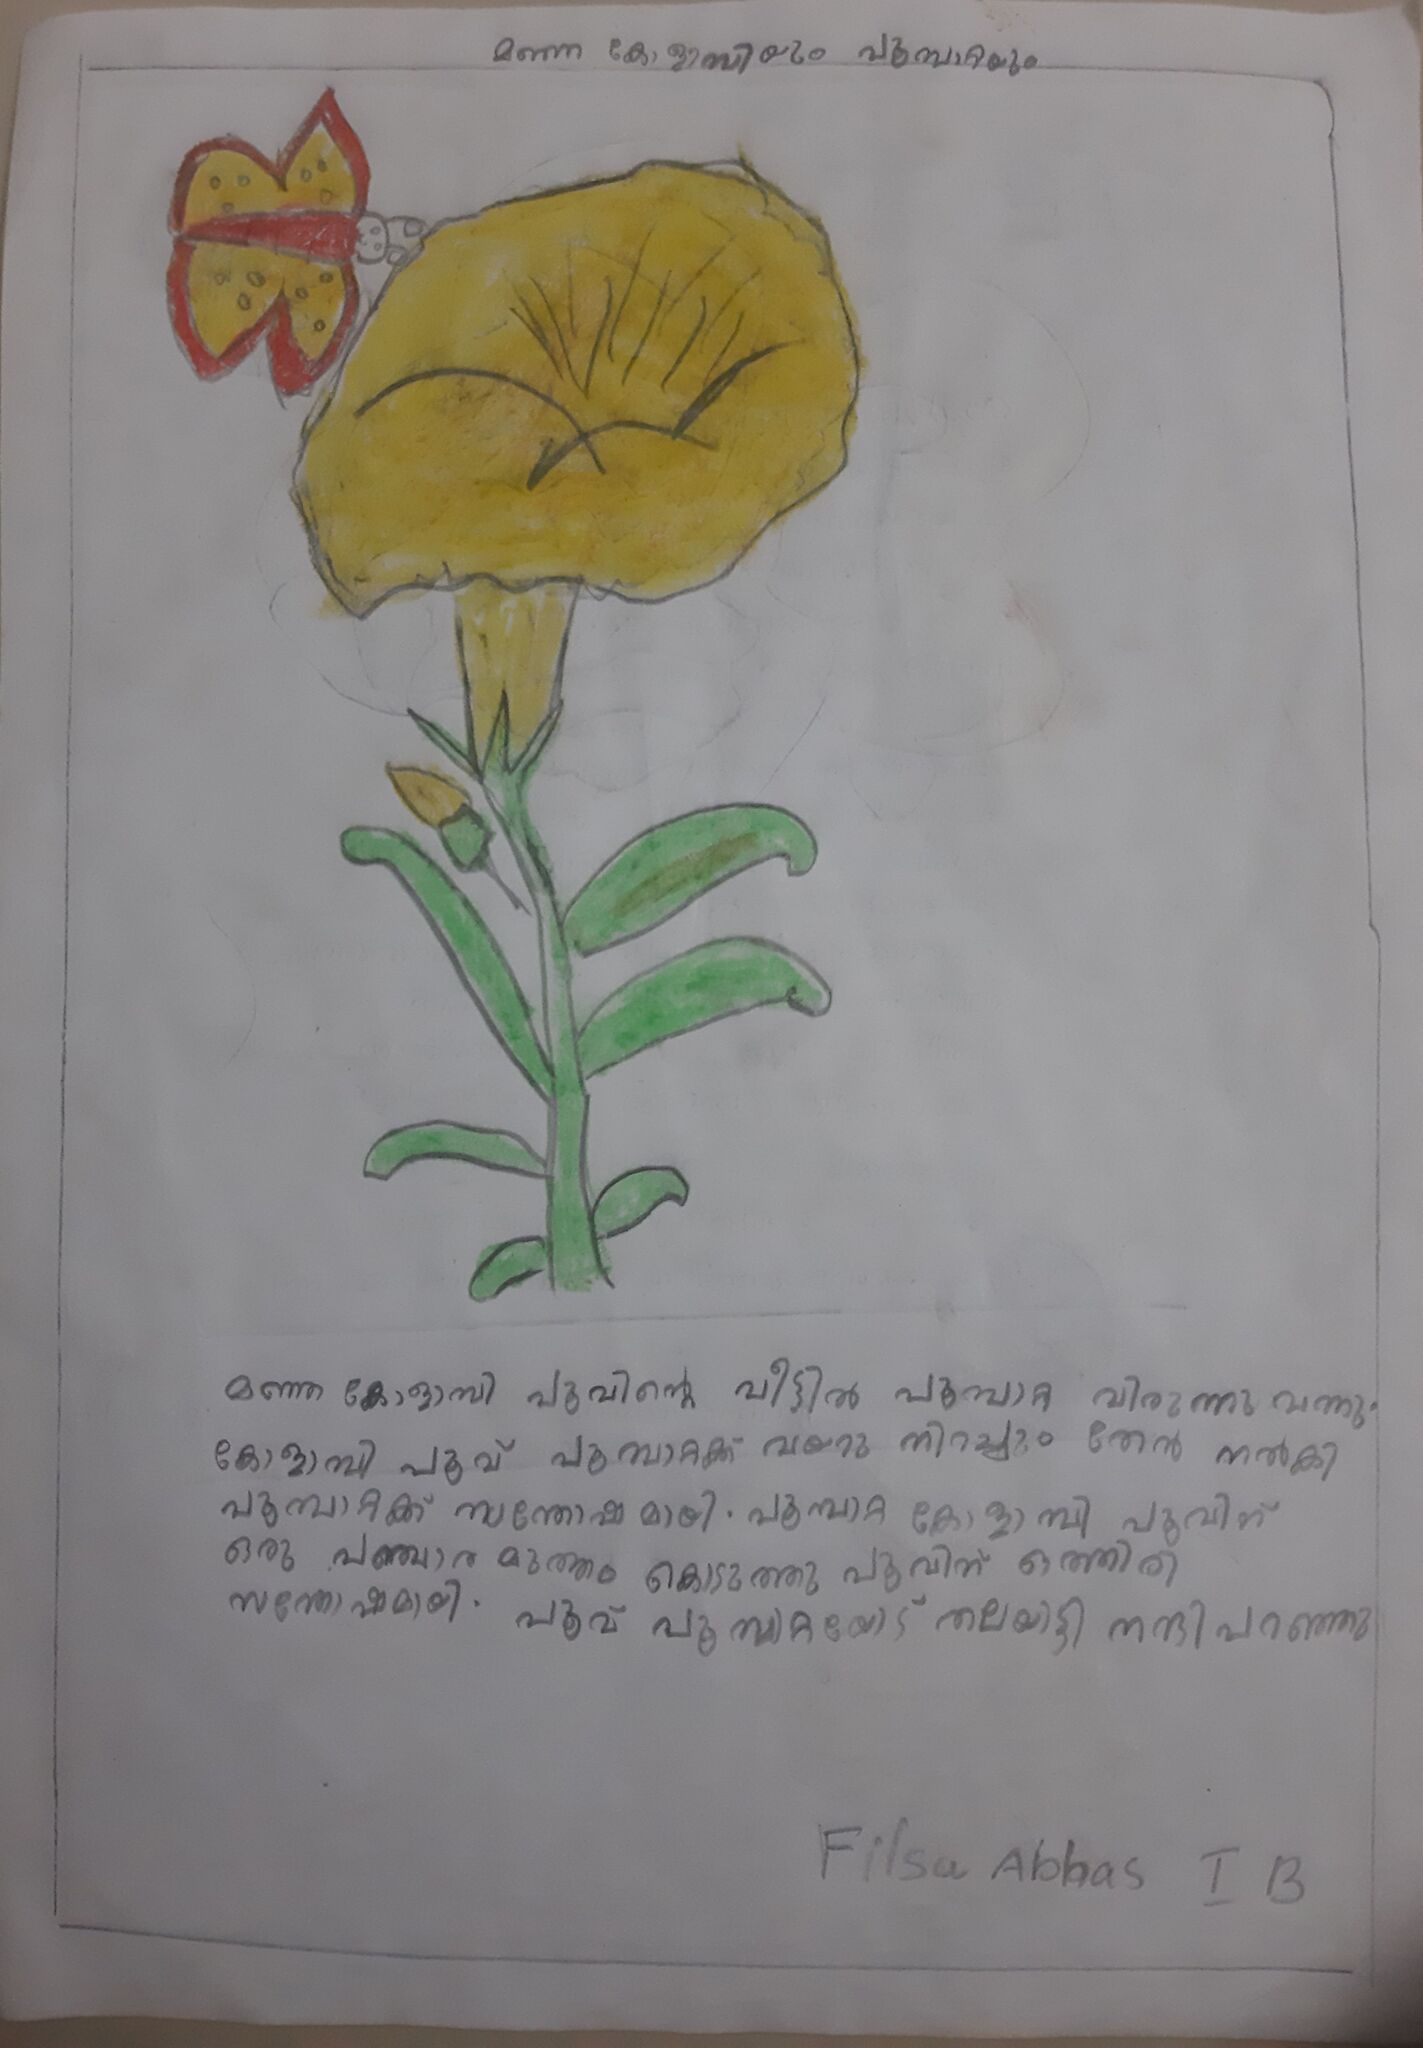 മഞ്ഞ കോളാമ്പിയും പൂമ്പാറ്റയും
മഞ്ഞ കോളാമ്പി പൂവിന്റെ വീട്ടിൽ പൂമ്പാറ്റ വിരുന്നു വന്നു.
കോളാമ്പി പൂവ് പൂമ്പാറ്റക്ക് വയറു നിറച്ചും തേൻ നൽകി
പൂമ്പാറ്റക്ക് സന്തോഷമായി. പൂമ്പാറ്റ കോളാമ്പി പൂവിന്
ഒരു പഞ്ചാര മുത്തം കൊടുത്തു പൂവിന് ഒത്തിരി
സന്തോഷമായി. പൂവ് പൂമ്പാറ്റയോട് തലയാട്ടി നന്ദി പറഞ്ഞു
Filsa Abbas I B